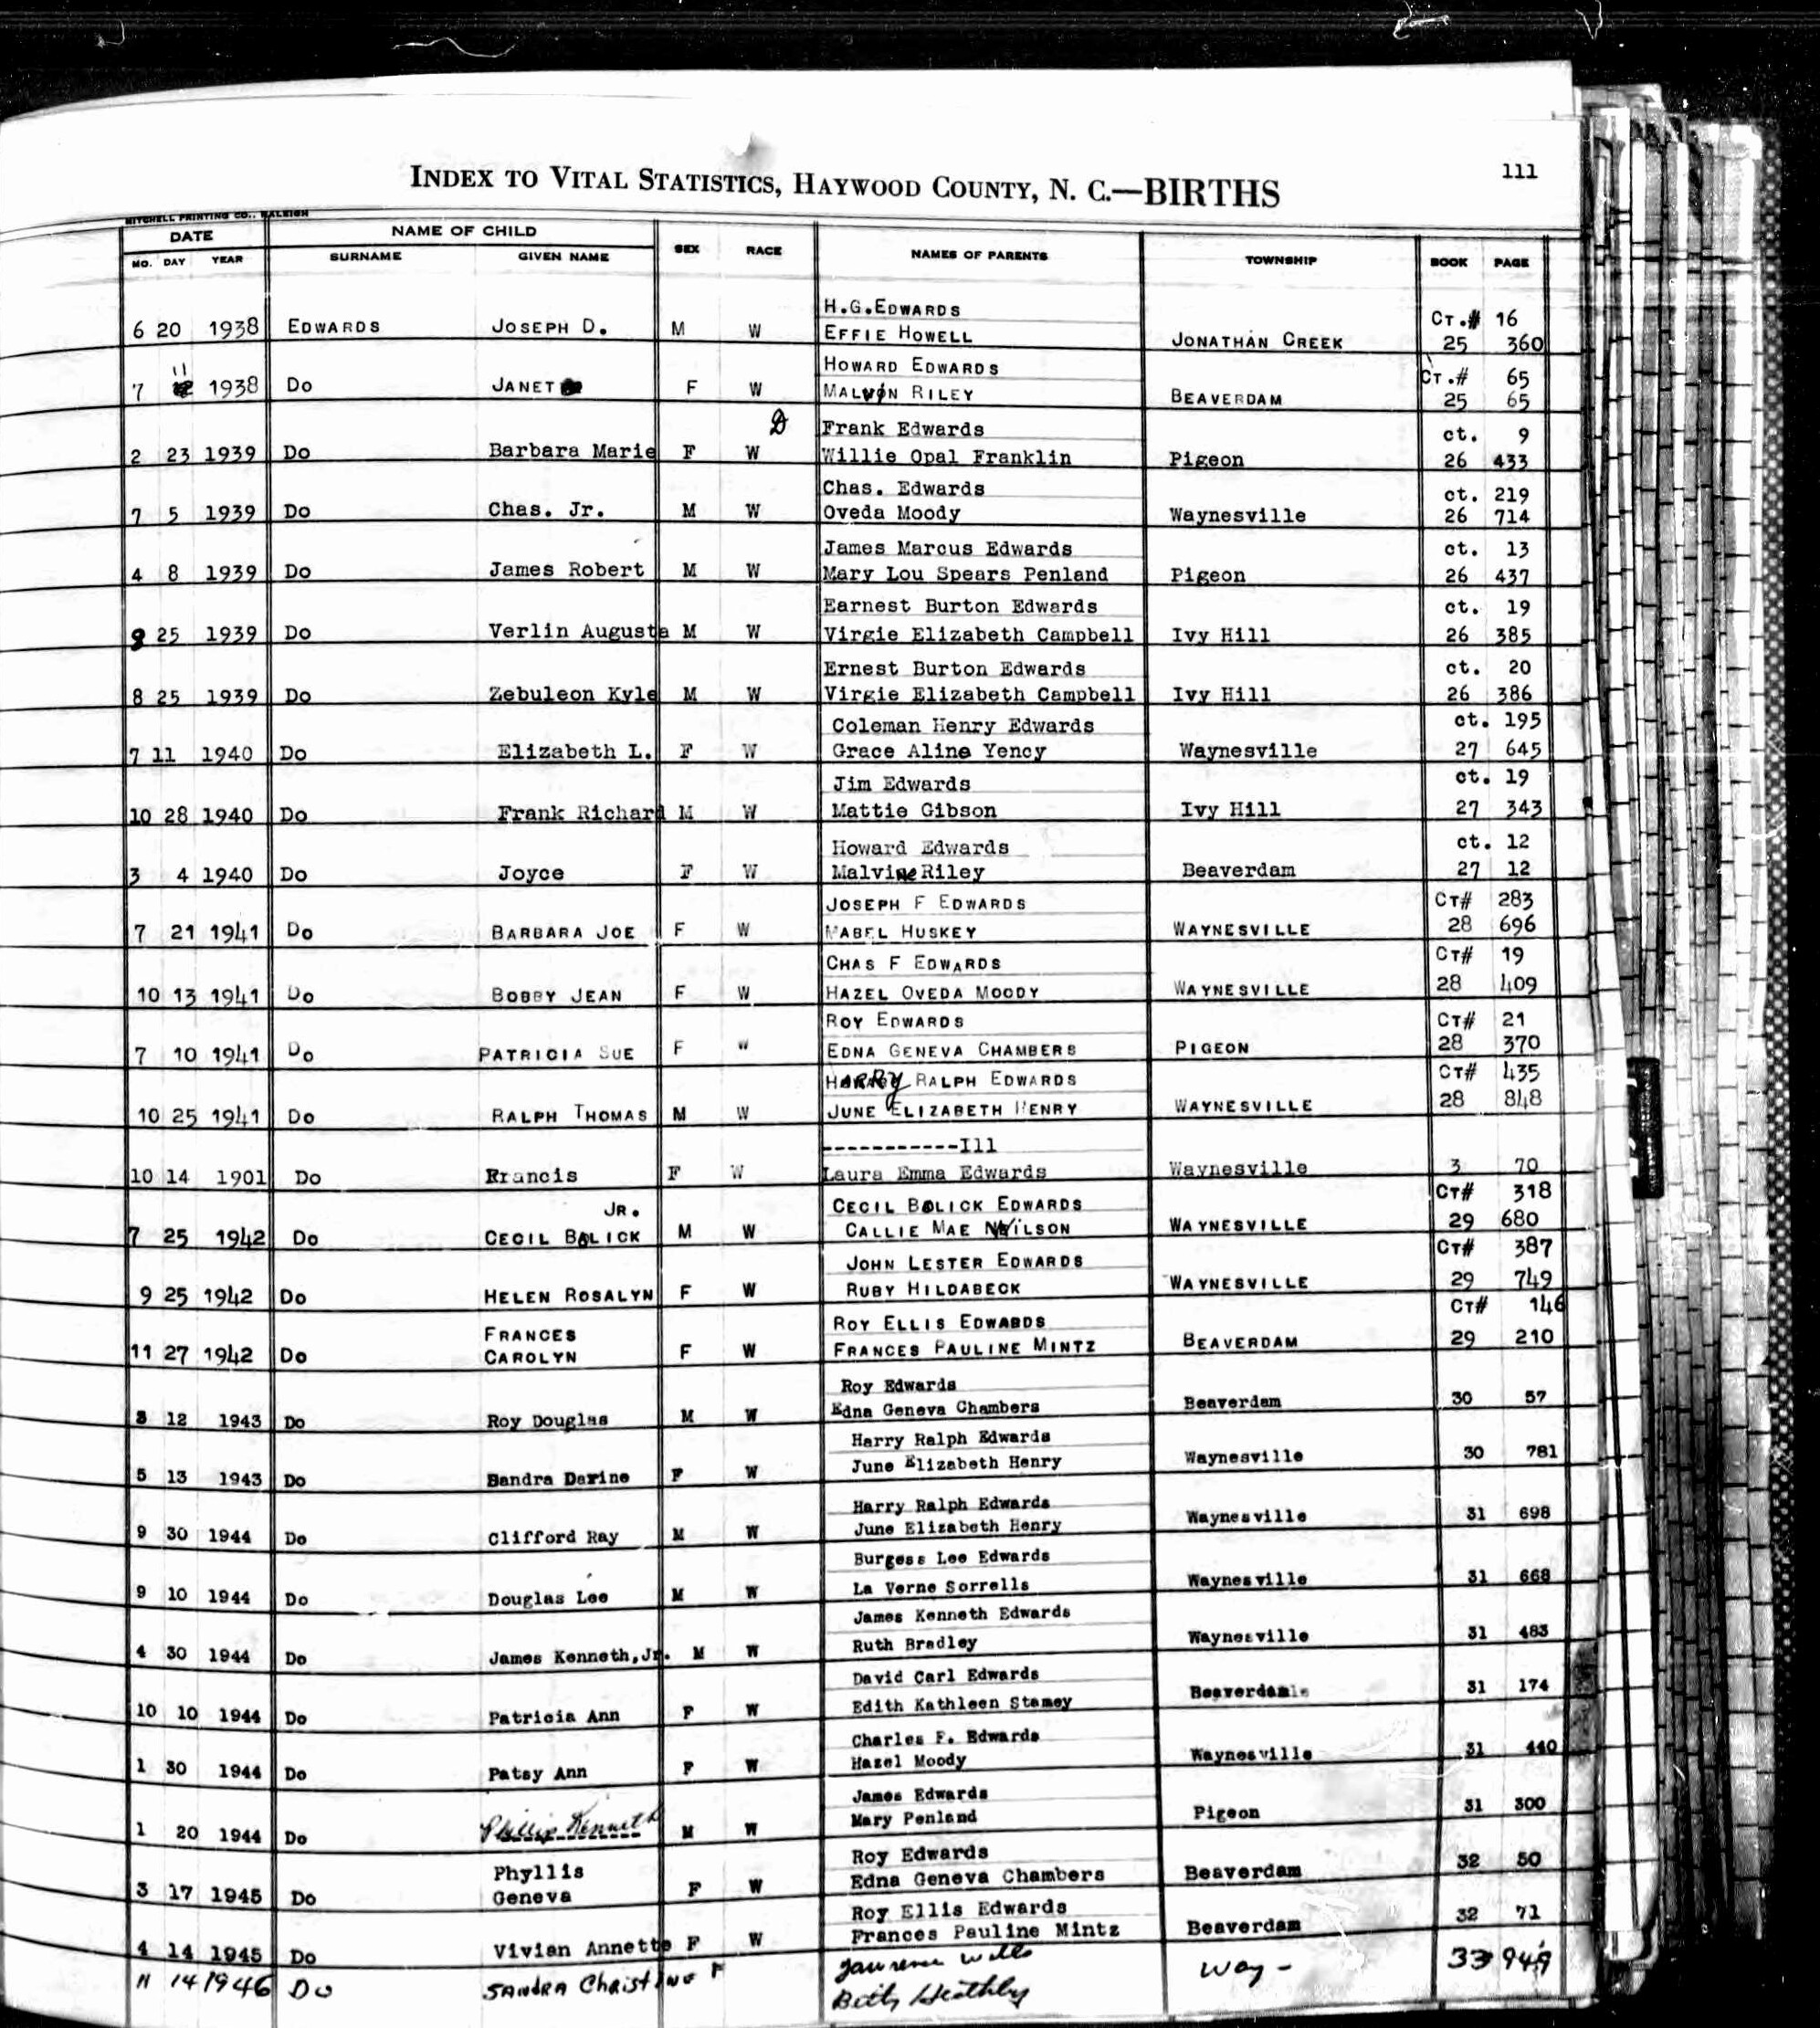 INDEX TO VITAL STATISTICS, HAYWOOD COUNTY, N. C.—BIRTHS 111
MITCHELL PRINTING CO., RALEIGH
DATE NAME OF CHILD SEX RACE NAMES OF PARENTS TOWNSHIP BOOK PAGE
MO. DAY YEAR SURNAME GIVEN NAME
H.G.EDWARDS CT.# 16
6 20 1938 EDWARDS JOSEPH D. M W EFFIE HOWELL JONATHAN CREEK 25 360
11 HOWARD EDWARDS CT.# 65
7 1938 DO JANET F W MALVON RILEY BEAVERDAM 25 65
D Frank Edwards ct. 9
2 23 1939 Do Barbara Marie F W Willie Opal Franklin Pigeon 26 433
Chas. Edwards ct. 219
7 5 1939 Do Chas. Jr. M W Oveda Moody Waynesville 26 714
James Marcus Edwards ct. 13
4 8 1939 Do James Robert M W Mary Lou Spears Penland Pigeon 26 437
Earnest Burton Edwards ct. 19
25 1939 Do Verlin Augusta M W Virgie Elizabeth Campbell Ivy Hill 26 385
Ernest Burton Edwards ct. 20
8 25 1939 Do Zebuleon Kyle M W Virgie Elizabeth Campbell Ivy Hill 26 386
Coleman Henry Edwards ct. 195
7 11 1940 Do Elizabeth L. F W Grace Aline Yency Waynesville 27 645
Jim Edwards ct. 19
10 28 1940 Do Frank Richard M W Mattie Gibson Ivy Hill 27 343
Howard Edwards ct. 12
3 4 1940 Do Joyce F W Malvine Riley Beaverdam 27 12
JOSEPH F EDWARDS CT# 283
7 21 1941 DO BARBARA JOE F W MABEL HUSKEY WAYNESVILLE 28 696
CHAS F EDWARDS CT# 19
10 13 1941 DO BOBBY JEAN F W HAZEL OVEDA MOODY WAYNESVILLE 28 409
ROY EDWARDS CT# 21
7 10 1941 DO PATRICIA SUE F W EDNA GENEVA CHAMBERS PIGEON 28 370
HARRY RALPH EDWARDS CT# 435
10 25 1941 DO RALPH THOMAS M W JUNE ELIZABETH HENRY WAYNESVILLE 28 848
-----------Ill
10 14 1901 Do Francis F W Laura Emma Edwards Waynesville 3 70
JR. CECIL BOLICK EDWARDS CT# 318
7 25 1942 DO CECIL BOLICK M W CALLIE MAE WILSON WAYNESVILLE 29 680
JOHN LESTER EDWARDS CT# 387
9 25 1942 DO HELEN ROSALYN F W RUBY HILDABECK WAYNESVILLE 29 749
FRANCES ROY ELLIS EDWARDS CT# 146
11 27 1942 DO CAROLYN F W FRANCES PAULINE MINTZ BEAVERDAM 29 210
Roy Edwards
3 12 1943 Do Roy Douglas M W Edna Geneva Chambers Beaverdam 30 57
Harry Ralph Edwards
5 13 1943 Do Sandra Darine F W June Elizabeth Henry Waynesville 30 781
Harry Ralph Edwards
9 30 1944 Do Clifford Ray M W June Elizabeth Henry Waynesville 31 698
Burgess Lee Edwards
9 10 1944 Do Douglas Lee M W La Verne Sorrells Waynesville 31 668
James Kenneth Edwards
4 30 1944 Do James Kenneth,Jr. M W Ruth Bradley Waynesville 31 483
David Carl Edwards
10 10 1944 Do Patricia Ann F W Edith Kathleen Stamey Beaverdam 31 174
Charles F. Edwards
1 30 1944 Do Patsy Ann F W Hazel Moody Waynesville 31 440
James Edwards
1 20 1944 Do Phillip Kenneth M W Mary Penland Pigeon 31 300
Phyllis Roy Edwards
3 17 1945 Do Geneva F W Edna Geneva Chambers Beaverdam 32 50
Roy Ellis Edwards
4 14 1945 Do Vivian Annette F W Frances Pauline Mintz Beaverdam 32 71
11 14 1946 Do SANDRA Christine F Way - 33 949
Betty